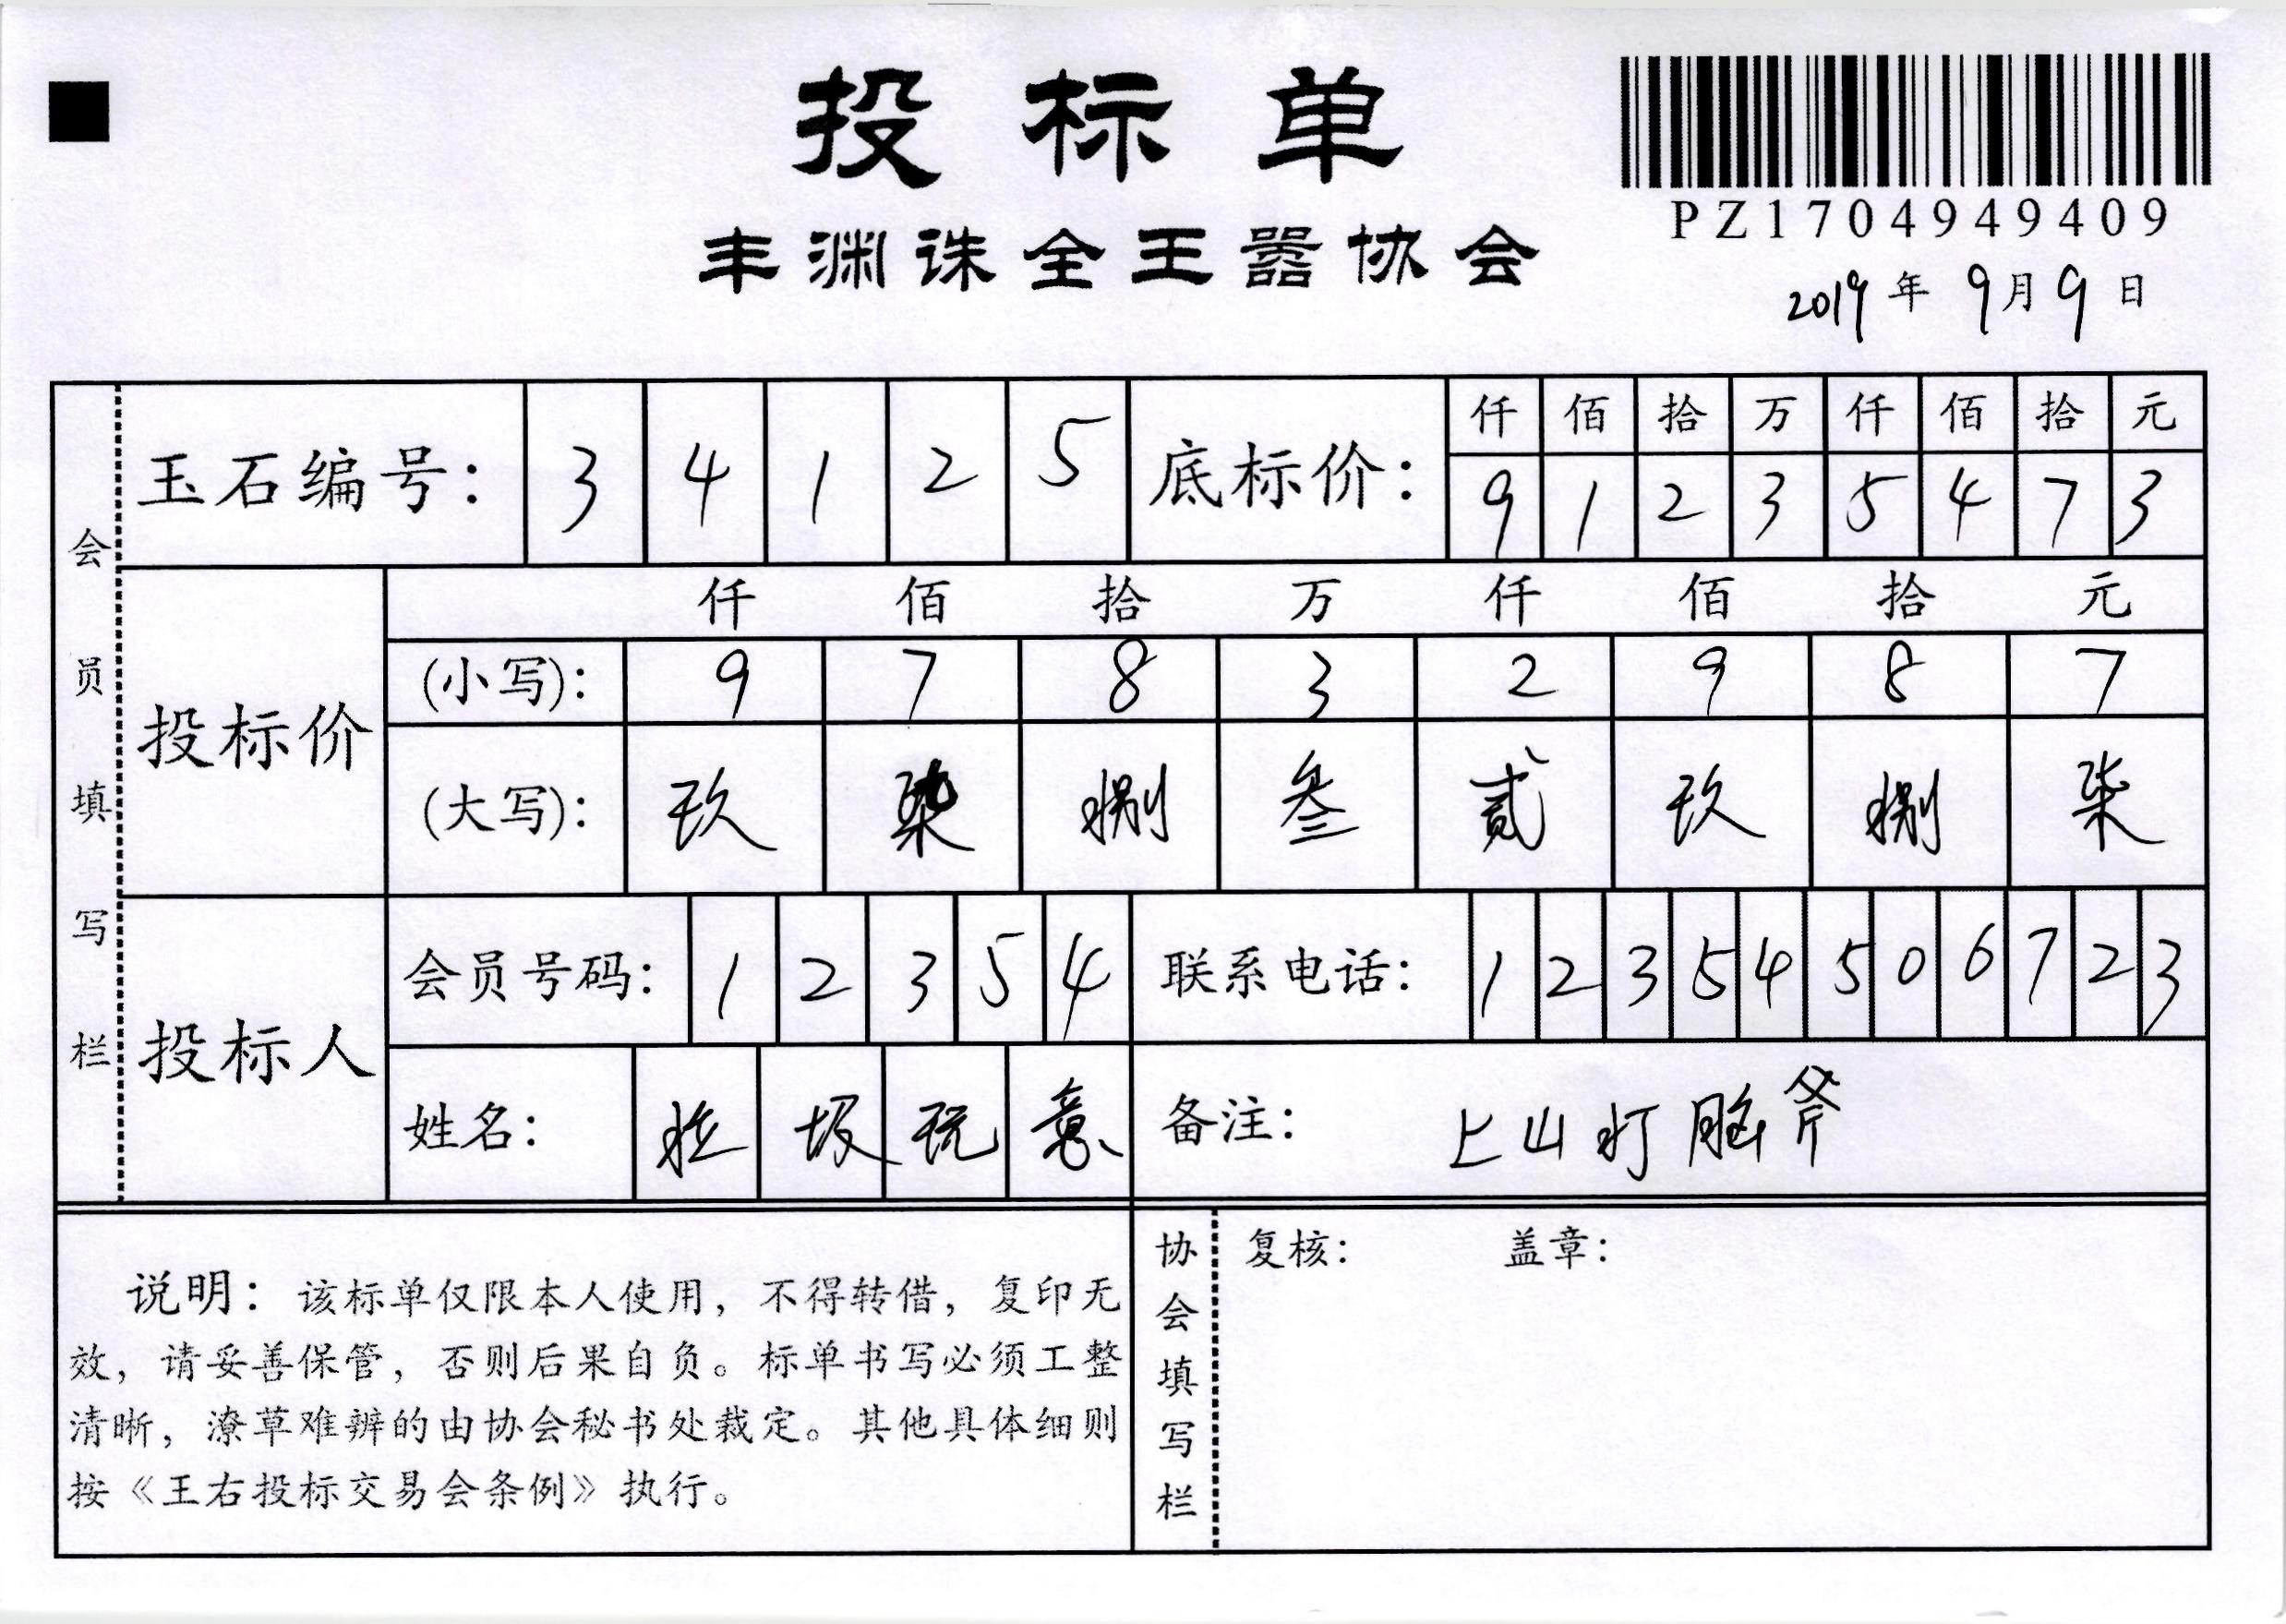 投标单
PZ1704949409
丰渊诛全王嚣协会
2019年9月9日
会员填写栏
玉石编号: 3 4 1 2 5 底标价: 仟 佰 拾 万 仟 佰 拾 元
9 1 2 3 5 4 7 3
投标价 仟 佰 拾 万 仟 佰 拾 元
(小写): 9 7 8 3 2 9 8 7
(大写): 玖 柒 捌 叁 贰 玖 捌 柒
投标人 会员号码: 1 2 3 5 4 联系电话: 1 2 3 5 4 5 0 6 7 2 3
姓名: 垃圾玩意 备注: 上山打脑斧
说明: 该标单仅限本人使用, 不得转借, 复印无
效, 请妥善保管, 否则后果自负。标单书写必须工整
清晰, 潦草难辨的由协会秘书处裁定。其他具体细则
按《王右投标交易会条例》执行。
协会填写栏
复核: 盖章: